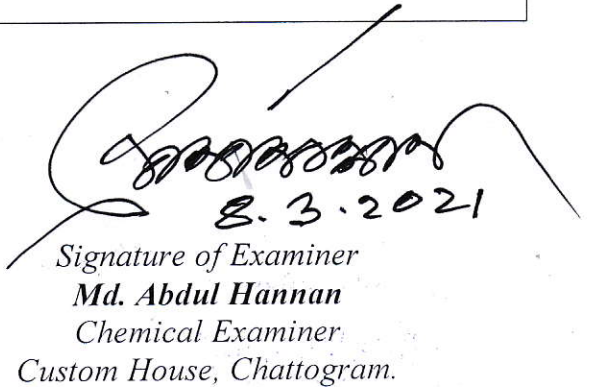 8.3.2021
Signature of Examiner
Md. Abdul Hannan
Chemical Examiner
Custom House, Chattogram.